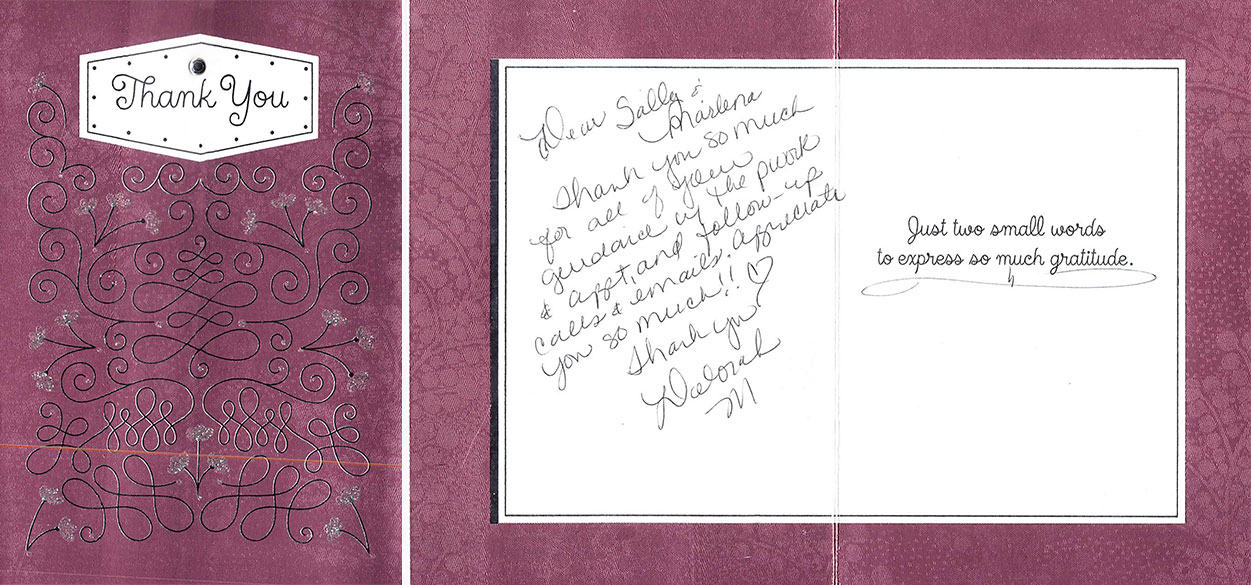 Thank You
Dear Sally &
Marlena
Thank you so much
for all of your
guidance w/ the pwork
& appt, and follow-up
calls & emails. Appreciate
you so much!! ♡
Thank you
Deborah
M
Just two small words
to express so much gratitude.